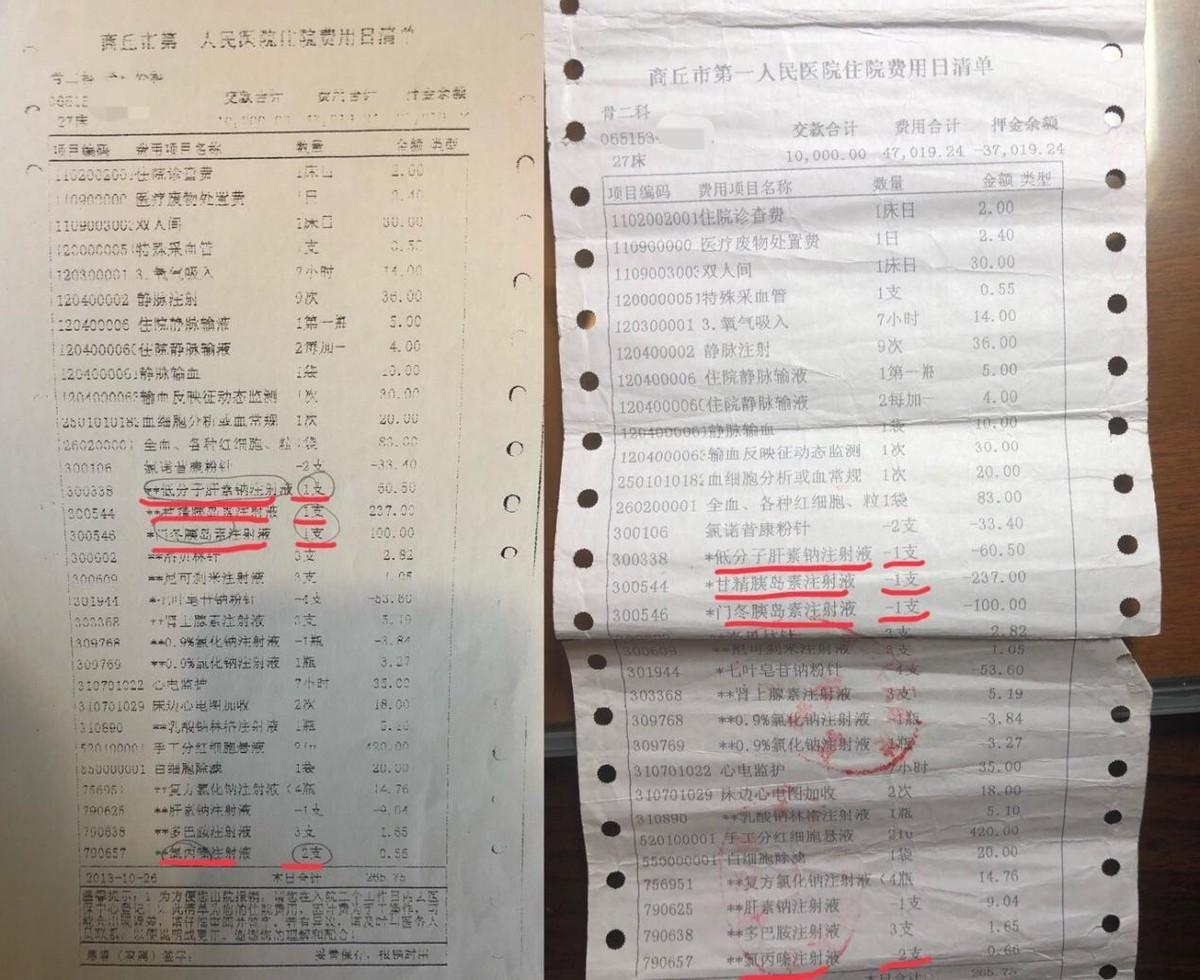 商丘市第 人民医院住院费用日清单
06515
27床
交款合计 费用合计
项目编码 费用项目名称 数量 金额 类型
110200200 住院诊查费 1床日 2.00
110900000 医疗废物处置费 1日 2.40
110900300 双人间 1床日 30.00
120000005 特殊采血管 1支 0.55
120300001 3.氧气吸入 7小时 14.00
120400002 静脉注射 9次 36.00
120400006 住院静脉输液 1第一瓶 5.00
1204000060 住院静脉输液 2每加一 4.00
1204000061 静脉输血 1袋 10.00
120400006 输血反映征动态监测 1次 30.00
250101018 血细胞分析或血常规 1次 20.00
260200001 全血、各种红细胞、粒 1袋 83.00
300106 氯诺昔康粉针 -2支 -33.40
300338 **低分子肝素钠注射液 1支 60.50
300544 **甘精胰岛素注射液 1支 237.00
300546 *门冬胰岛素注射液 1支 100.00
300602 3支 2.82
300609 **尼可刹米注射液 3支 1.05
301944 *七叶皂苷钠粉针 -4支 -53.60
303368 **肾上腺素注射液 3支 5.19
309768 **0.9%氯化钠注射液 -1瓶 -3.84
309769 **0.9%氯化钠注射液 1瓶 3.27
310701022 心电监护 7小时 35.00
310701029 床边心电图加收 2次 18.00
310890 **乳酸钠林格注射液 1瓶 5.10
520100001 手工分红细胞悬液 2 420.00
550000001 白细胞除滤 1袋 20.00
756951 **复方氯化钠注射液 (4瓶 14.76
790625 **肝素钠注射液 -1支 -9.04
790638 **多巴胺注射液 3支 1.65
790657 **氯丙嗪注射液 2支 0.66
2013-10-26 本日合计 265.75
商丘市第一人民医院住院费用日清单
骨二科
065153
27床
交款合计 费用合计 押金余额
10,000.00 47,019.24 -37,019.24
项目编码 费用项目名称 数量 金额 类型
1102002001住院诊查费 1床日 2.00
110900000 医疗废物处置费 1日 2.40
110900300 双人间 1床日 30.00
1200000051特殊采血管 1支 0.55
120300001 3.氧气吸入 7小时 14.00
120400002 静脉注射 9次 36.00
120400006 住院静脉输液 1第一瓶 5.00
120400006 住院静脉输液 2每加一 4.00
1204000061静脉输血 1袋 10.00
120400006 输血反映征动态监测 1次 30.00
250101018 血细胞分析或血常规 1次 20.00
260200001 全血、各种红细胞、粒1袋 83.00
300106 氯诺昔康粉针 -2支 -33.40
300338 *低分子肝素钠注射液 -1支 -60.50
300544 *甘精胰岛素注射液 -1支 -237.00
300546 *门冬胰岛素注射液 -1支 -100.00
3支 2.82
300609 **尼可刹米注射液 3支 1.05
301944 *七叶皂苷钠粉针 -4支 -53.60
303368 **肾上腺素注射液 3支 5.19
309768 **0.9%氯化钠注射液 -1瓶 -3.84
309769 **0.9%氯化钠注射液 1瓶 3.27
310701022 心电监护 7小时 35.00
310701029 床边心电图加收 2次 18.00
310890 **乳酸钠林格注射液 1瓶 5.10
520100001 手工分红细胞悬液 2 420.00
550000001 白细胞除滤 1袋 20.00
756951 **复方氯化钠注射液 (4瓶 14.76
790625 **肝素钠注射液 1支 9.04
790638 **多巴胺注射液 3支 1.65
790657 **氯丙嗪注射液 2支 0.66
本日合计 265.75